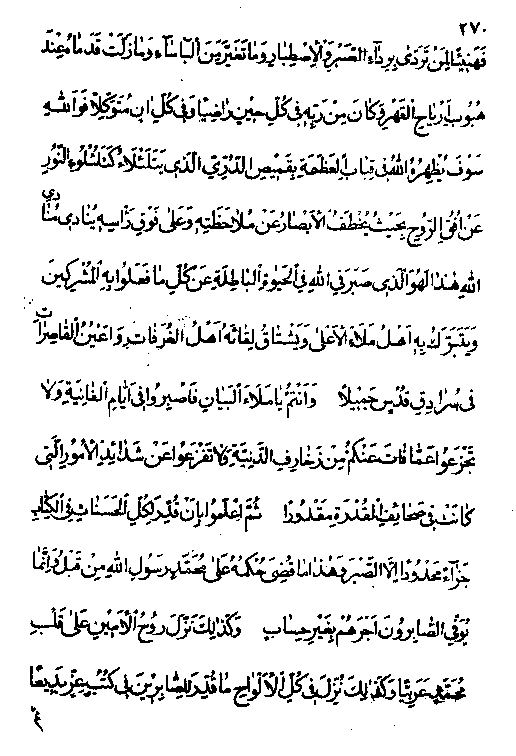 ٢٧٠
فَهَنِيئًا لِمَنْ تَرَدّٰى بِرِدَاءِ الصَّبْرِ وَالْاِصْطِبَارِ وَمَا تَغَيَّرَ مِنَ الْبَاْسَاءِ وَمَا زَلَّتْ قَدَمَاهُ عِنْدَ
هُبُوبِ اَرْيَاحِ الْقَهْرِ وَكَانَ مِنْ رَبِّهِ فِى كُلِّ حِينٍ رَاضِيًا وَفِى كُلِّ اٰنٍ مُتَوَكِّلًا فَوَاللهِ
سَوْفَ يُظْهِرُهُ اللهُ فِى قِبَابِ الْعَظَمَةِ بِقَمِيصِ الدُّرِّىِّ الَّذِى يَتَلَئْلَاءُ كَتَلَئْلُوءِ النُّورِ
عَنْ اُفُقِ الرُّوحِ بِحَيْثُ يَخْطَفُ الْاَبْصَارَ عَنْ مُلَاحَظَتِهِ وَعَلٰى فَوْقِ رَاْسِهِ يُنَادِى مُنَادِى
اللهِ هٰذَا لَهُوَ الَّذِى صَبَرَ فِى اللهِ فِى الْحَيٰوةِ الْبَاطِلَةِ عَنْ كُلِّ مَا فَعَلُوا بِهِ الْمُشْرِكِينَ
وَيَتَبَرَّكُ بِهِ اَهْلُ مَلَاءِ الْاَعْلٰى وَيَشْتَاقُ لِقَائَهُ اَهْلُ الْغُرَفَاتِ وَاَعْيُنُ الْقَاصِرَاتِ
فِى سُرَادِقِ قُدْسٍ جَمِيلًا وَاَنْتُمْ يَا مَلَاءَ الْبَيَانِ فَاصْبِرُوا فِى اَيَّامِ الْفَانِيَةِ وَلَا
تَجْزَعُوا عَمَّا فَاتَ عَنْكُمْ مِنْ زَخَارِفِ الدَّنِيَّةِ وَلَا تَفْزَعُوا عَنْ شَدَايِدِ الْاُمُورِ الَّتِى
كَانَتْ فِى صَحَايِفِ الْقُدْرَةِ مَقْدُورًا ثُمَّ اعْلَمُوا بِاَنْ قُدِّرَ لِكُلِّ الْحَسَنَاتِ فِى الْكِتَابِ
جَزَآءٌ مَحْدُودًا اِلَّا الصَّبْرَ وَهٰذَا مَا قُضِىَ حُكْمُهُ عَلٰى مُحَمَّدٍ رَسُولِ اللهِ مِنْ قَبْلُ وَاِنَّمَا
يُوَفَّى الصَّابِرُونَ اَجْرَهُمْ بِغَيْرِ حِسَابٍ وَكَذٰلِكَ نَزَلَ رُوحُ الْاَمِينِ عَلٰى قَلْبِ
مُحَمَّدٍ عَرَبِيًّا وَكَذٰلِكَ نُزِّلَ فِى كُلِّ الْاَلْوَاحِ مَا قُدِّرَ لِلصَّابِرِينَ فِى كُتُبِ عِزٍّ بَدِيعًا